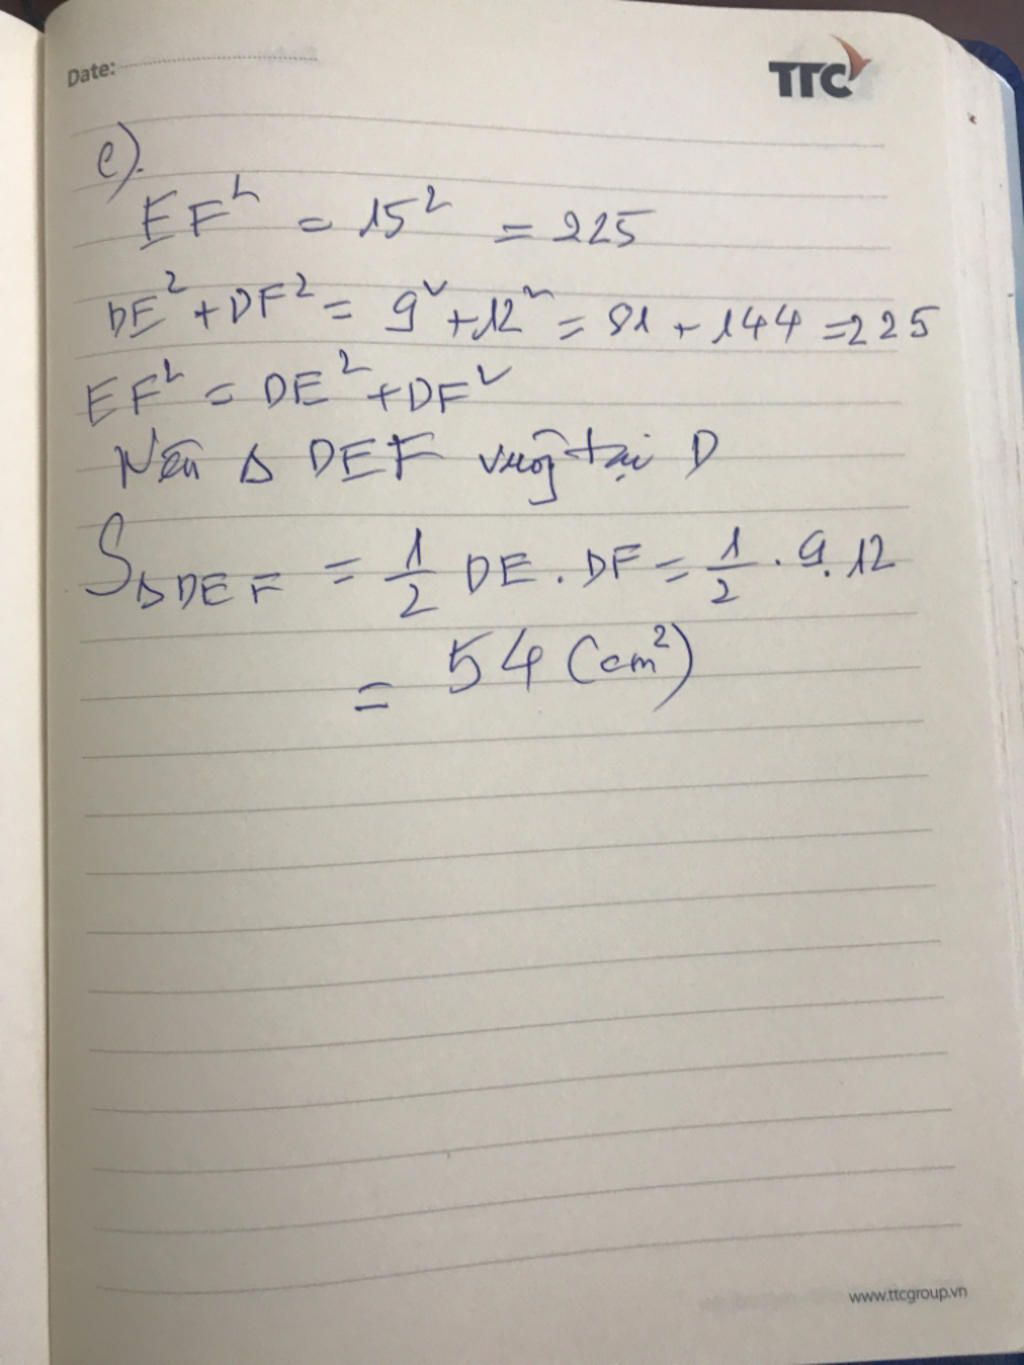 Date:
TTC
e).
EF² = 15² = 225
DE² + DF² = 9² + 12² = 81 + 144 = 225
EF² = DE² + DF²
Nên Δ DEF vuông tại D
SΔDEF = 1/2 DE . DF = 1/2 . 9.12
= 54 (cm²)
www.ttcgroup.vn